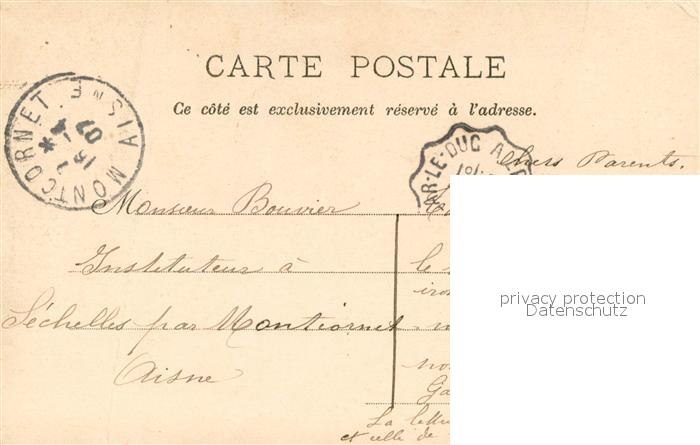 CARTE POSTALE
Ce côté est exclusivement réservé à l'adresse.
MONTCORNET AISNE
15
07
R-LE-DUC A
Chers Parents.
Monsieur Bouvier
Instituteur à
Séchelles par Montcornet
Aisne
le
La lettre
et celle de
privacy protection
Datenschutz